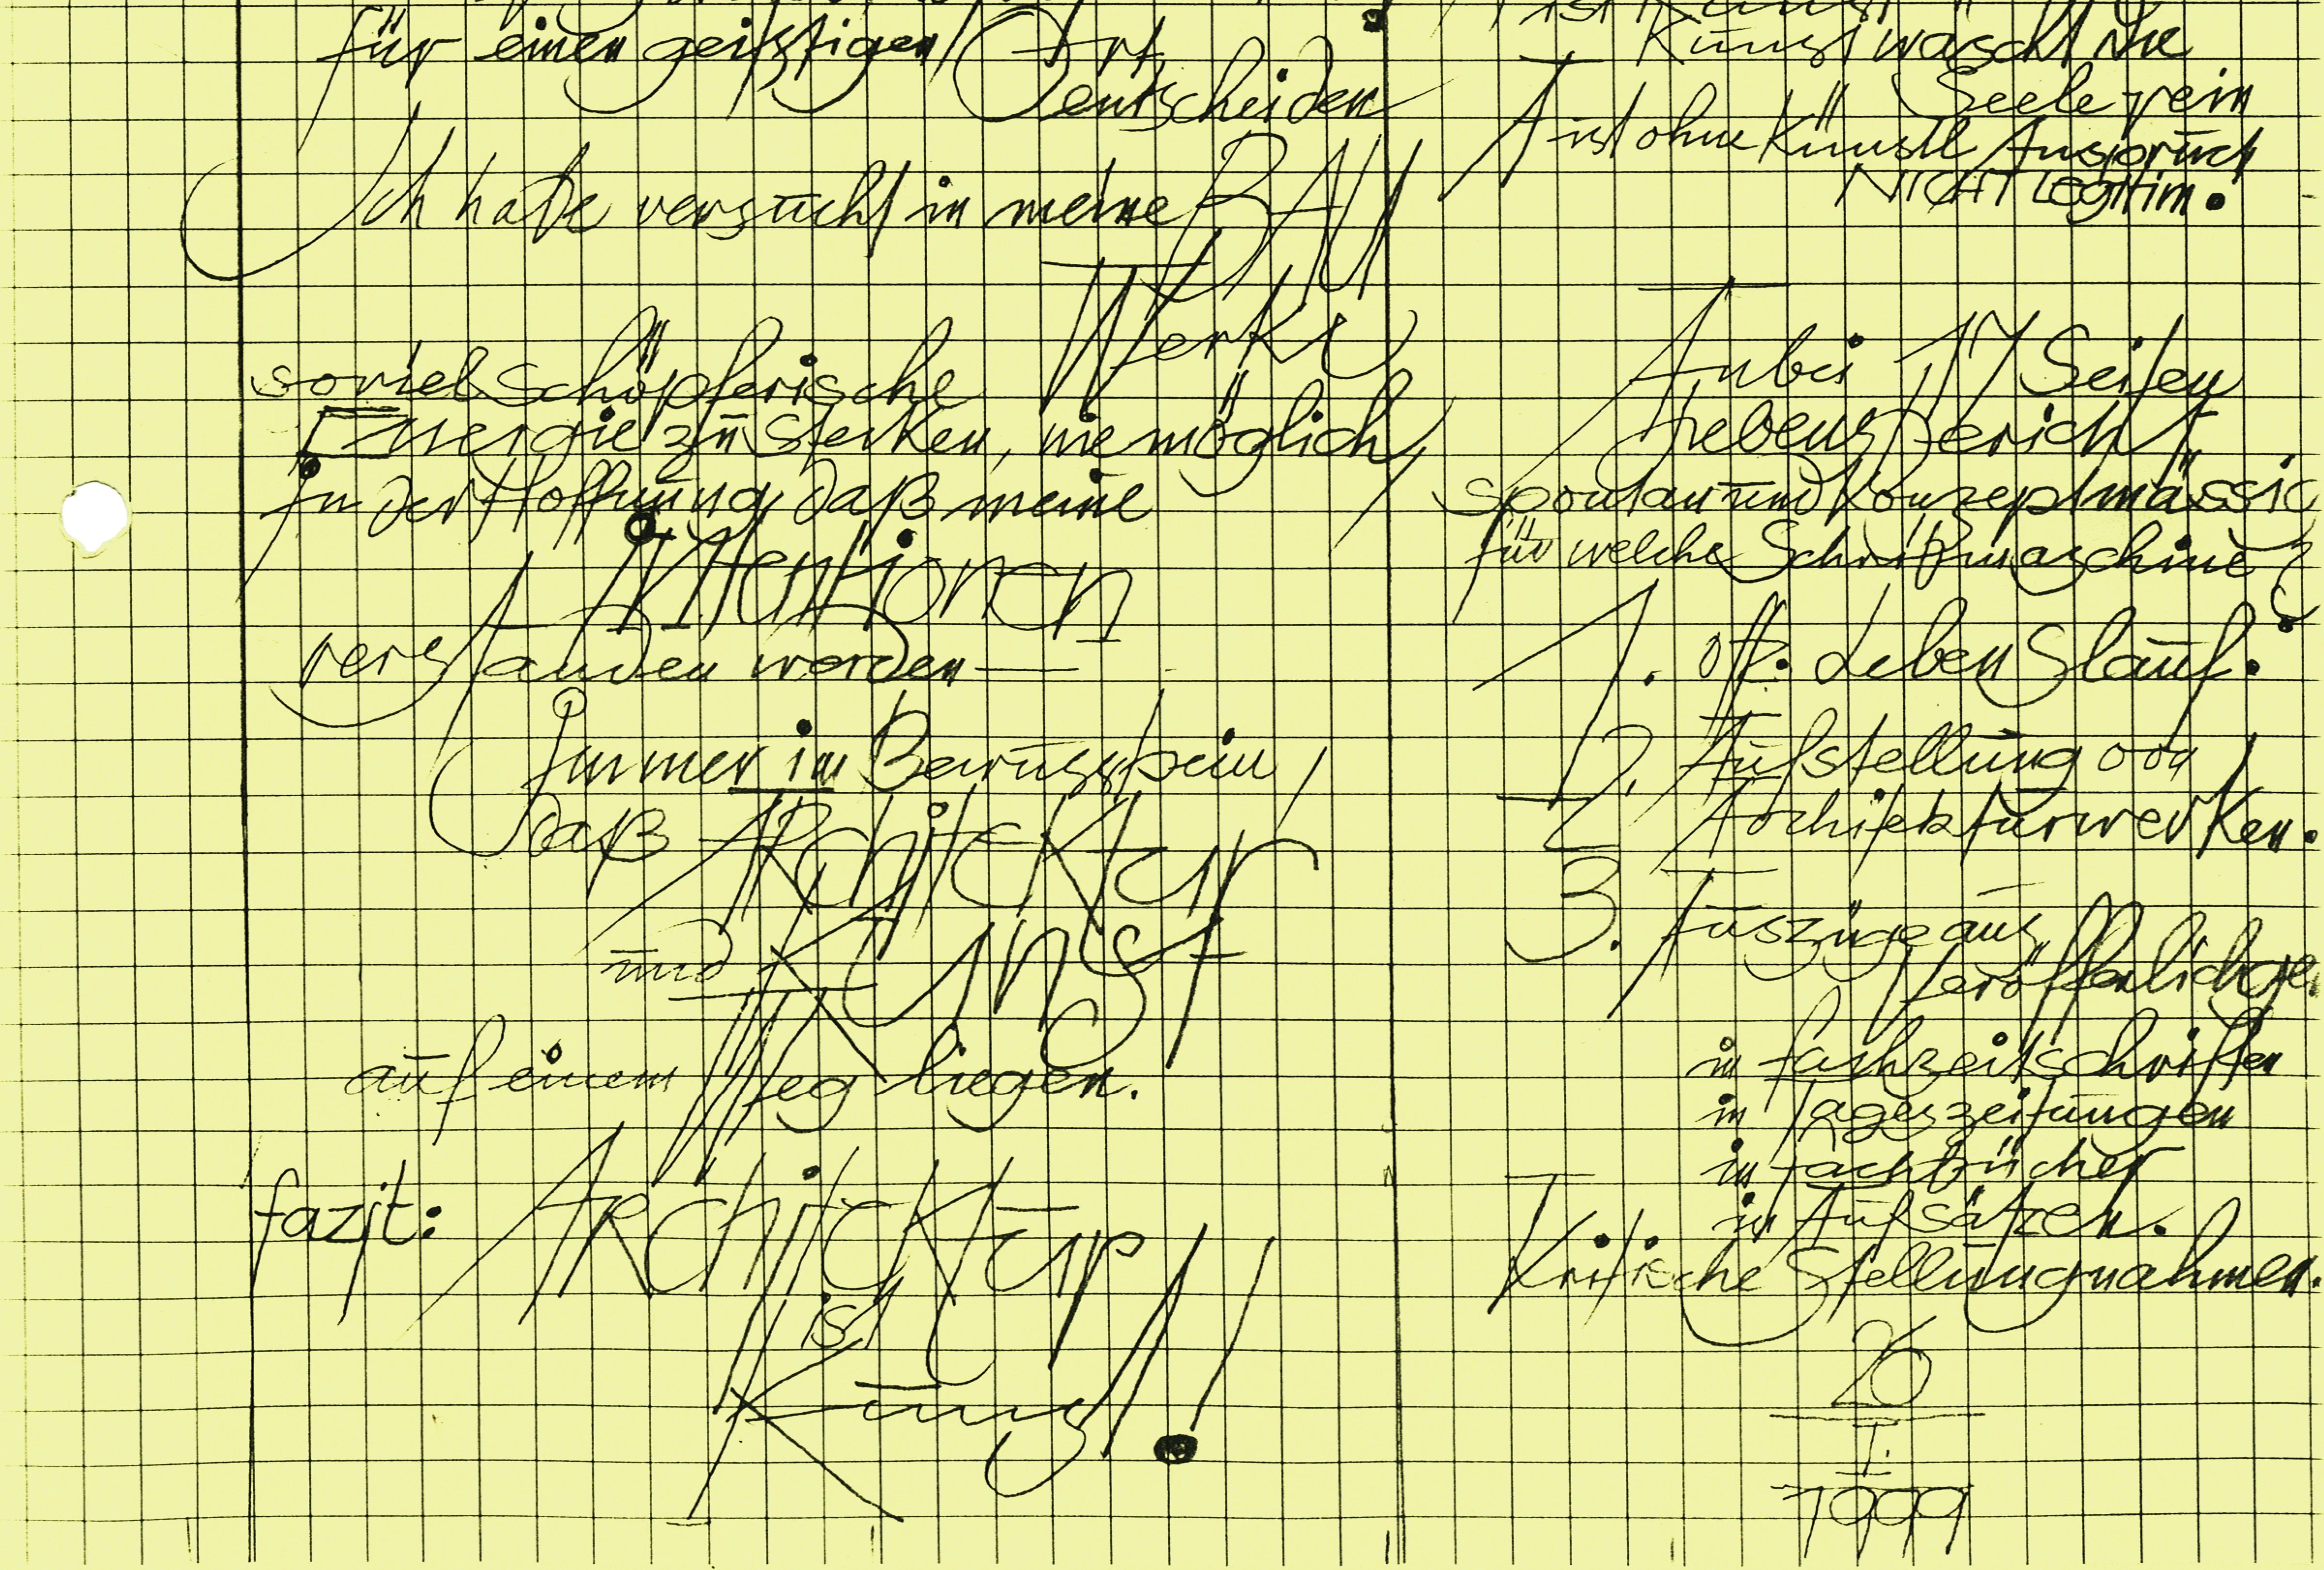 für einen geistigen Ort
entscheiden
Ich habe versucht in meine BAU
Werke
soviel schöpferische
Energie zu stecken, wie möglich,
in der Hoffnung daß meine
Intentionen
verstanden werden —
Immer im Bewusstsein,
daß Architektur
und Kunst
auf einem Weg liegen.
fazit: Architektur
ist
Kunst!
ist Kunst
Kunst wascht die
Seele rein
A ist ohne Künstl Anspruch
NICHT Legitim.
Anbei 17 Seiten
Lebensbericht
spontan und Konzeptmässig
für welche Schreibmaschine?
1. öff. Lebenslauf.
2. Aufstellung von
Architekturwerken.
3. Auszüge aus
Veröffentlichgen
in fachzeitschriften
in Tageszeitungen
in fachbücher
in Aufsätzen.
Kritische Stellungnahmen.
26
I.
1999